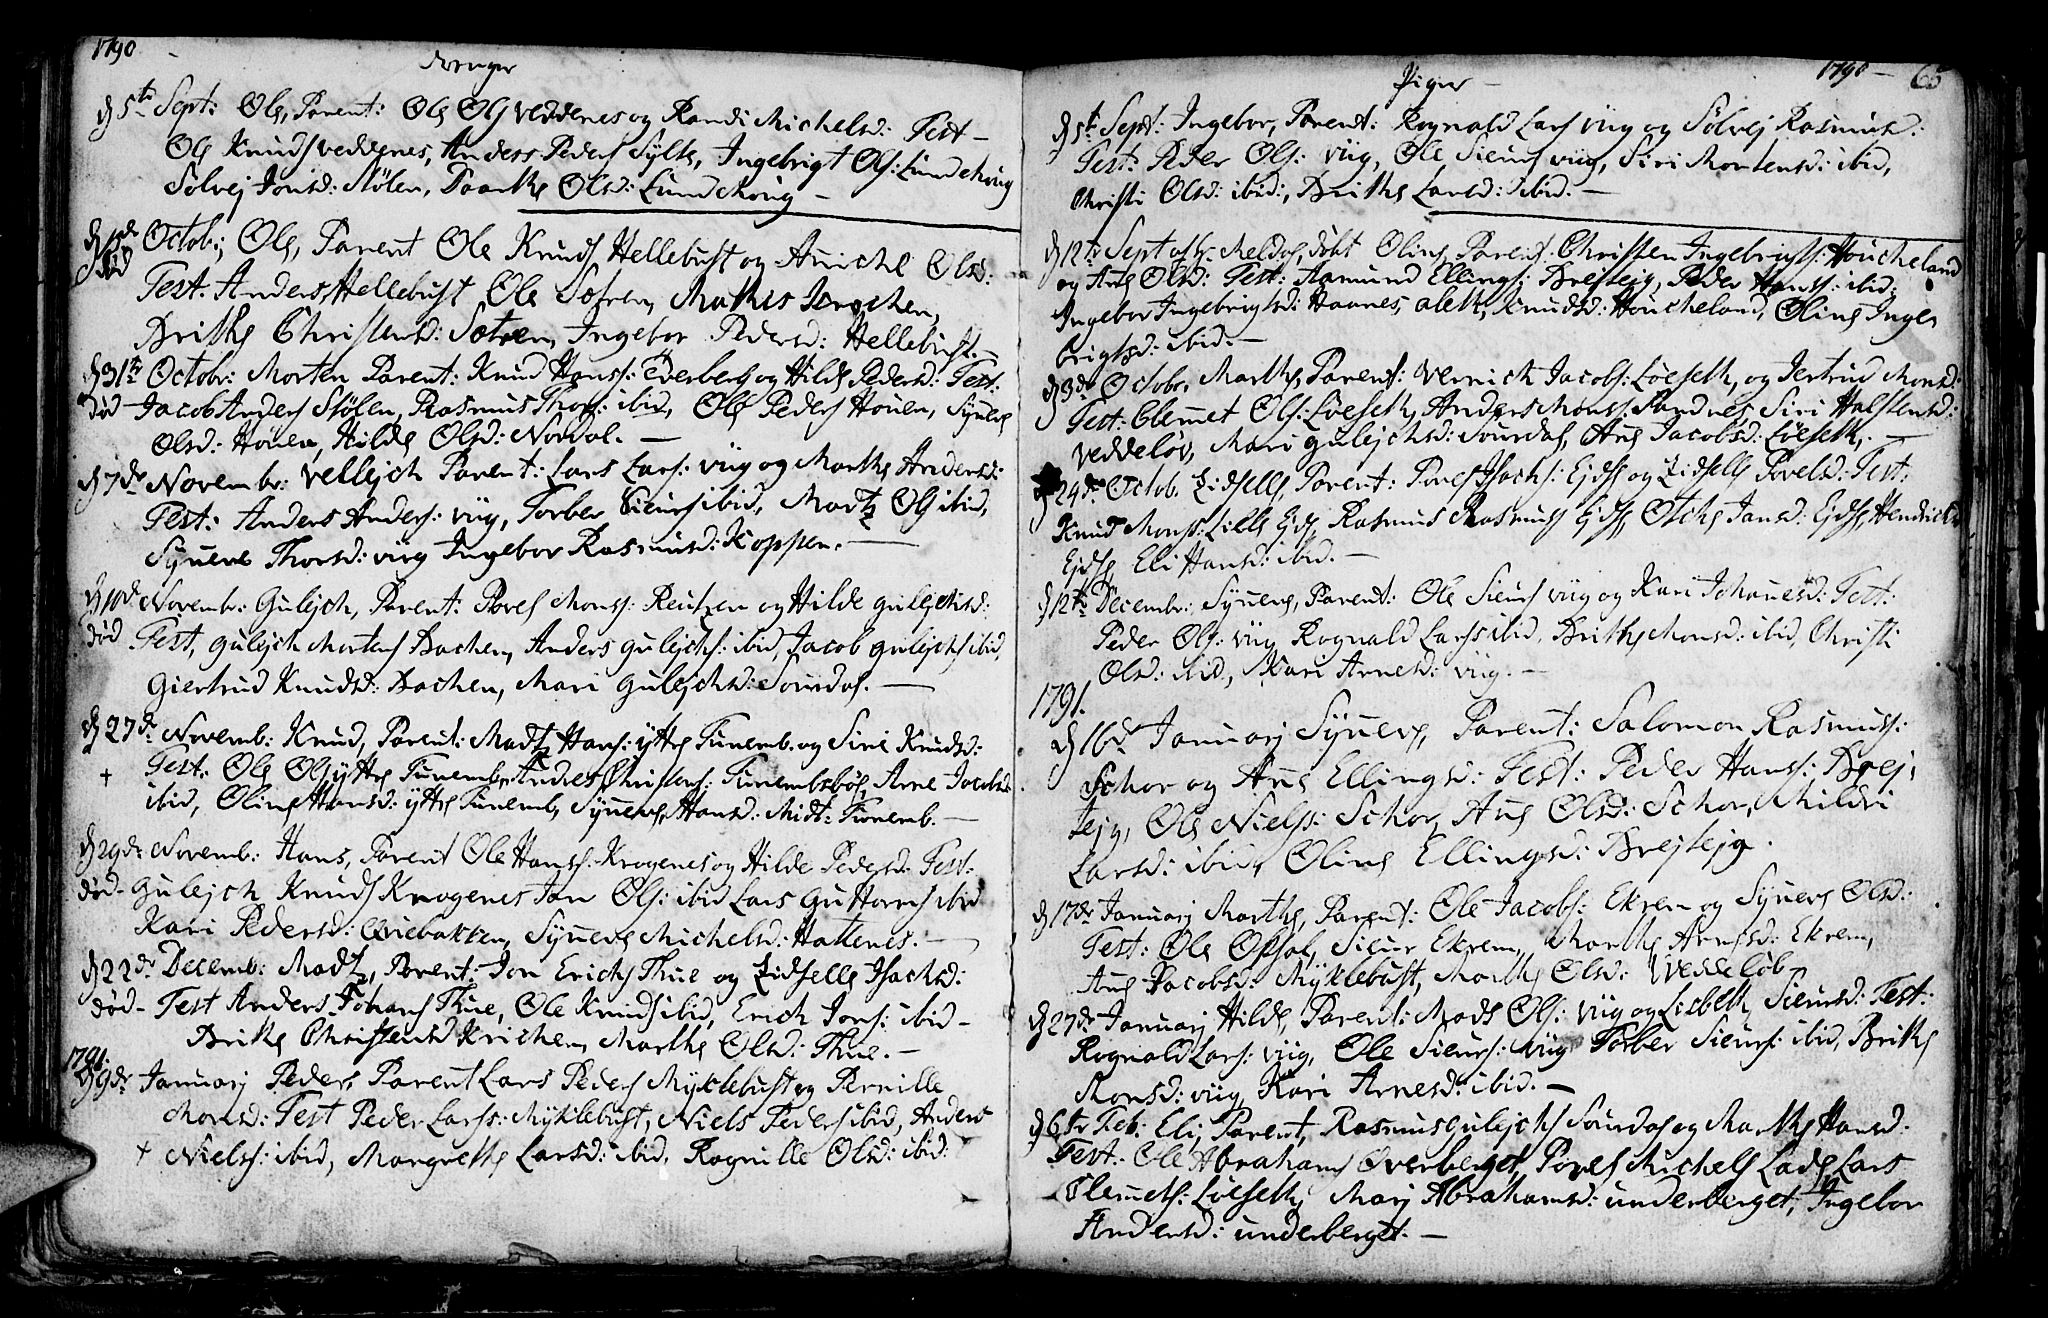 1790
Drenger
d 5te Sept: Ole, Parent: Ole Ols Veddenes og Randi Michelsd: Test-
Ole Knuds Veddenes, Anders Peders Sylte, Ingebrigt Ols: Lundekoug
Solvej Jonsd: Stølen, Marthe Olsd: Lundekoug –
Octob: Ole, Parent Ole Knuds Hellebust og Anichl Olsd:
død Test. Anders Hellebust Ole Sætren, Mathis
Brithe Christensd: Sætren, Ingebor Pedersd: Hellebust.
d 31te Octobr: Morten Parent: Knud Hanss: Everberg og Hilde Pedersd: Test:
død Jacob Anders Stølen, Rasmus Thoes: ibid, Ole Peders Houen, Synneve
Olsd: Houen, Hilde Olsd: Nordal. –
d 7de Novembr: Vellejch Parent: Lars Lars: Viig og Marthe Andersd:
Test: Anders Anders: Viig, Torber Sieurs ibid, Martz Ols ibid,
Synneve Thorsd: Viig Ingebor Rasmusd: Koppen. –
d 10de Novembr: Gulejch, Parent: Povel Monss: Reutzen og Hilde Gulejchsd:
død Test, Gulejch Mortens Bachen, Anders Gulejchs: ibid, Jacob Gulejchs ibid,
Giertrud Knudsd: Bachen, Mari Gulejchsd: Sourdal. –
d 27de Novemb: Knud, Parent: Madtz Hans: Ytre Furemb. og Siri Knudsd:
+ Test: Ole Ols Ytre Furemb, Andres Christens: Furembsbøe, Arne Jacobs
ibid, Oline Hansd: Ytre Furemb, Synneve Hansd: Midt: Furemb. –
d 29de Novemb: Hans, Parent Ole Hanss: Krogenes og Hilde Pedersd: Test:
død- Gulejch Knuds Krogenes Jon Ols: ibid Lars Guttorms ibid
Kari Pedersd: Qviebakken, Synneve Michelsd: Hattenes. –
d 22de Decemb: Madtz, Parent: Jon Erichs Thue og Zidselle Isachsd:
død- Test Anders Johans Thue, Ole Knuds ibid, Erich Jons: ibid –
Brithe Christensd Krichen, Marthe Olsd: Thue. –
1791.
d 9de Januarj Peder, Parent Lars Peders Myklebust og Pernille
Monsd: Test Peder Larss: Myklebust, Niels Peders ibid, Anders
+ Nielss: ibid, Margrethe Larsd: ibid, Rognille Olsd: ibid:
Piger
1790 – 65
d 5te Sept: Ingebor, Parent: Rognald Lars Viig og Solvej Rasmusd:
Test: Peder Ols: Viig, Ole Sieurs Viig, Siri Mortensd: ibid,
Christi Olsd: ibid:, Brithe Larsd: ibid. –
d 12te Sept døbt Oline, Parent: Christen Ingebrigts: Houcheland
og Ane Olsd: Test: Aamund Ellings: Brejtejg, Peder Hanss: ibid:
Ingebor Ingebrigtsd: Haanes, Alethe Knudsd: Houcheland, Oline Inge-
brigtsd: ibid. –
d 3de Octobr, Marthe, Parent: Verrich Jacobs: Løeseth, og Jertrud Monsd:
Test: Clemmet Ols: Løeseth, Anders Monss: Sandnes, Siri Halstensd:
Veddeløv, Mari Gulejchsd: Sourdal, Ane Jacobsd: Løeseth. –
d 24de Octob. Zidselle, Parent: Povel Isachs: Ejdse og Zidselle Povelsd: Test:
Knud Monss: Lille Ejdse, Rasmus Rasmus Ejdse, Jansd: Ejdse, Hendrich
Ejdse, Eli Hansd: ibid. –
d 12te Decembr: Synneve, Parent: Ole Sieurs Viig og Kari Johanesd: Test:
Peder Ols: Viig Rognald Larss ibid, Brithe Monsd: ibid, Christi
Olsd: ibid, Kari Arnesd: Viig. –
1791.
d 16de Januarj Synneve, Parent: Salomon Rasmuss:
Schor og Ane Ellingsd: Test: Peder Hanss: Brej-
tejg, Ole Nielss: Schor, Ane Olsd: Schor, Mildri
Larsd: ibid, Oline Ellingsd: Brejtejg.
d 17de Januarj Marthe, Parent: Ole Jacobs: Ekrem og Synneve Olsd:
Test: Ole Opsal, Sieur Ekrem, Marthe Arnesd: Ekrem,
Ane Jacobsd: Myklebust, Marthe Olsd: Weddeløb
d 27de Januarj Hilde, Parent: Mads Ols: Viig og Lisbeth Sieursd: Test:
Rognald Lars: Viig, Ole Sieurs: Viig Torber Sieurs: ibid, Brithe
Monsd: Viig, Kari Arnesd: ibid. –
d 6te Feb: Eli, Parent, Rasmus Gulejchs Sourdal og Marthe Hansd:
Test: Ole Abrahams Overberget, Povel Michels Lade Lars
Clemets: Løeseth, Marj Abrahamsd: underberget, Ingebor
Andersd: underberget. –